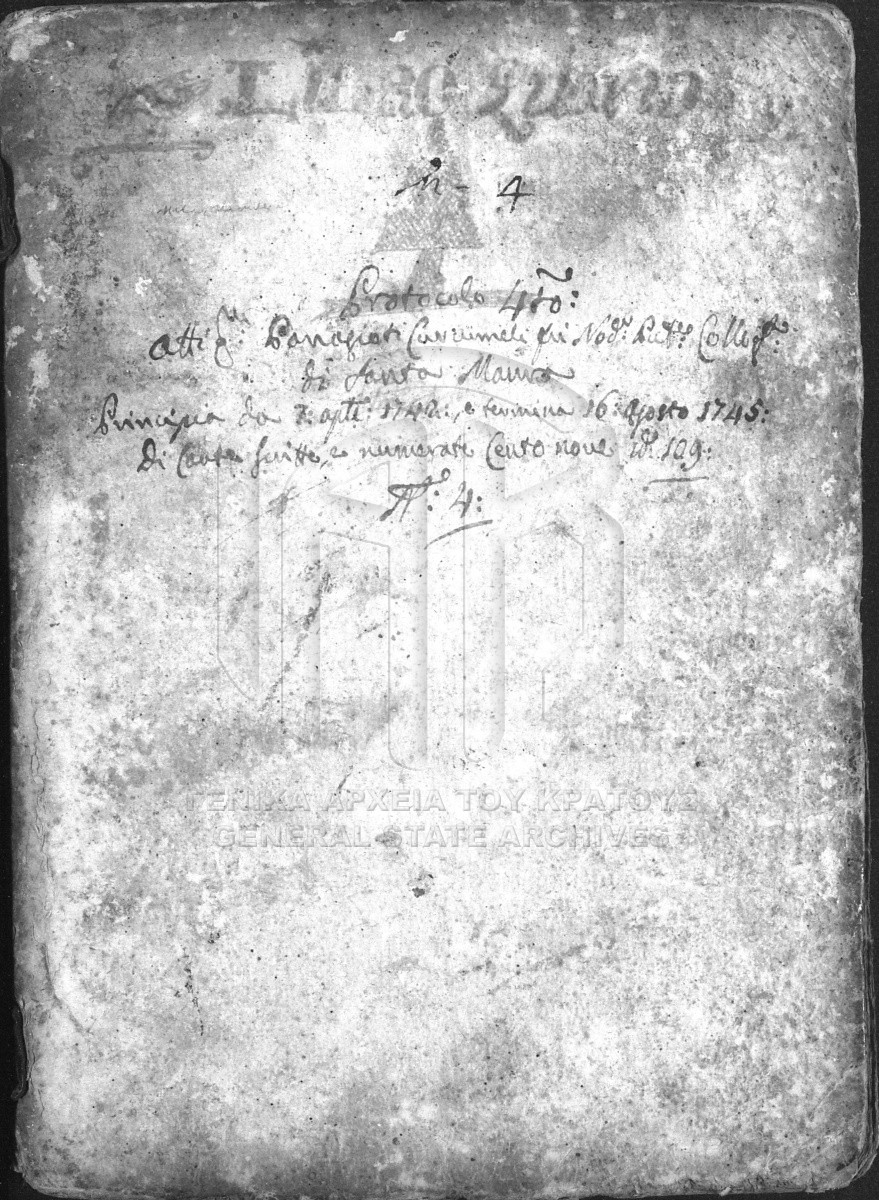 Libro Quarto
N - 4
Protocolo 4to:
Atti qm: Panagioti Curcumeli fù Nodr: Publ: Colleg:
di Santa Maura
Principia da 7: aple: 1742:, e termina 16: agosto 1745:
di Carte scritte, e numerate Cento nove id: 109:
Nº: 4:
ΓΕΝΙΚΑ ΑΡΧΕΙΑ ΤΟΥ ΚΡΑΤΟΥΣ
GENERAL STATE ARCHIVES